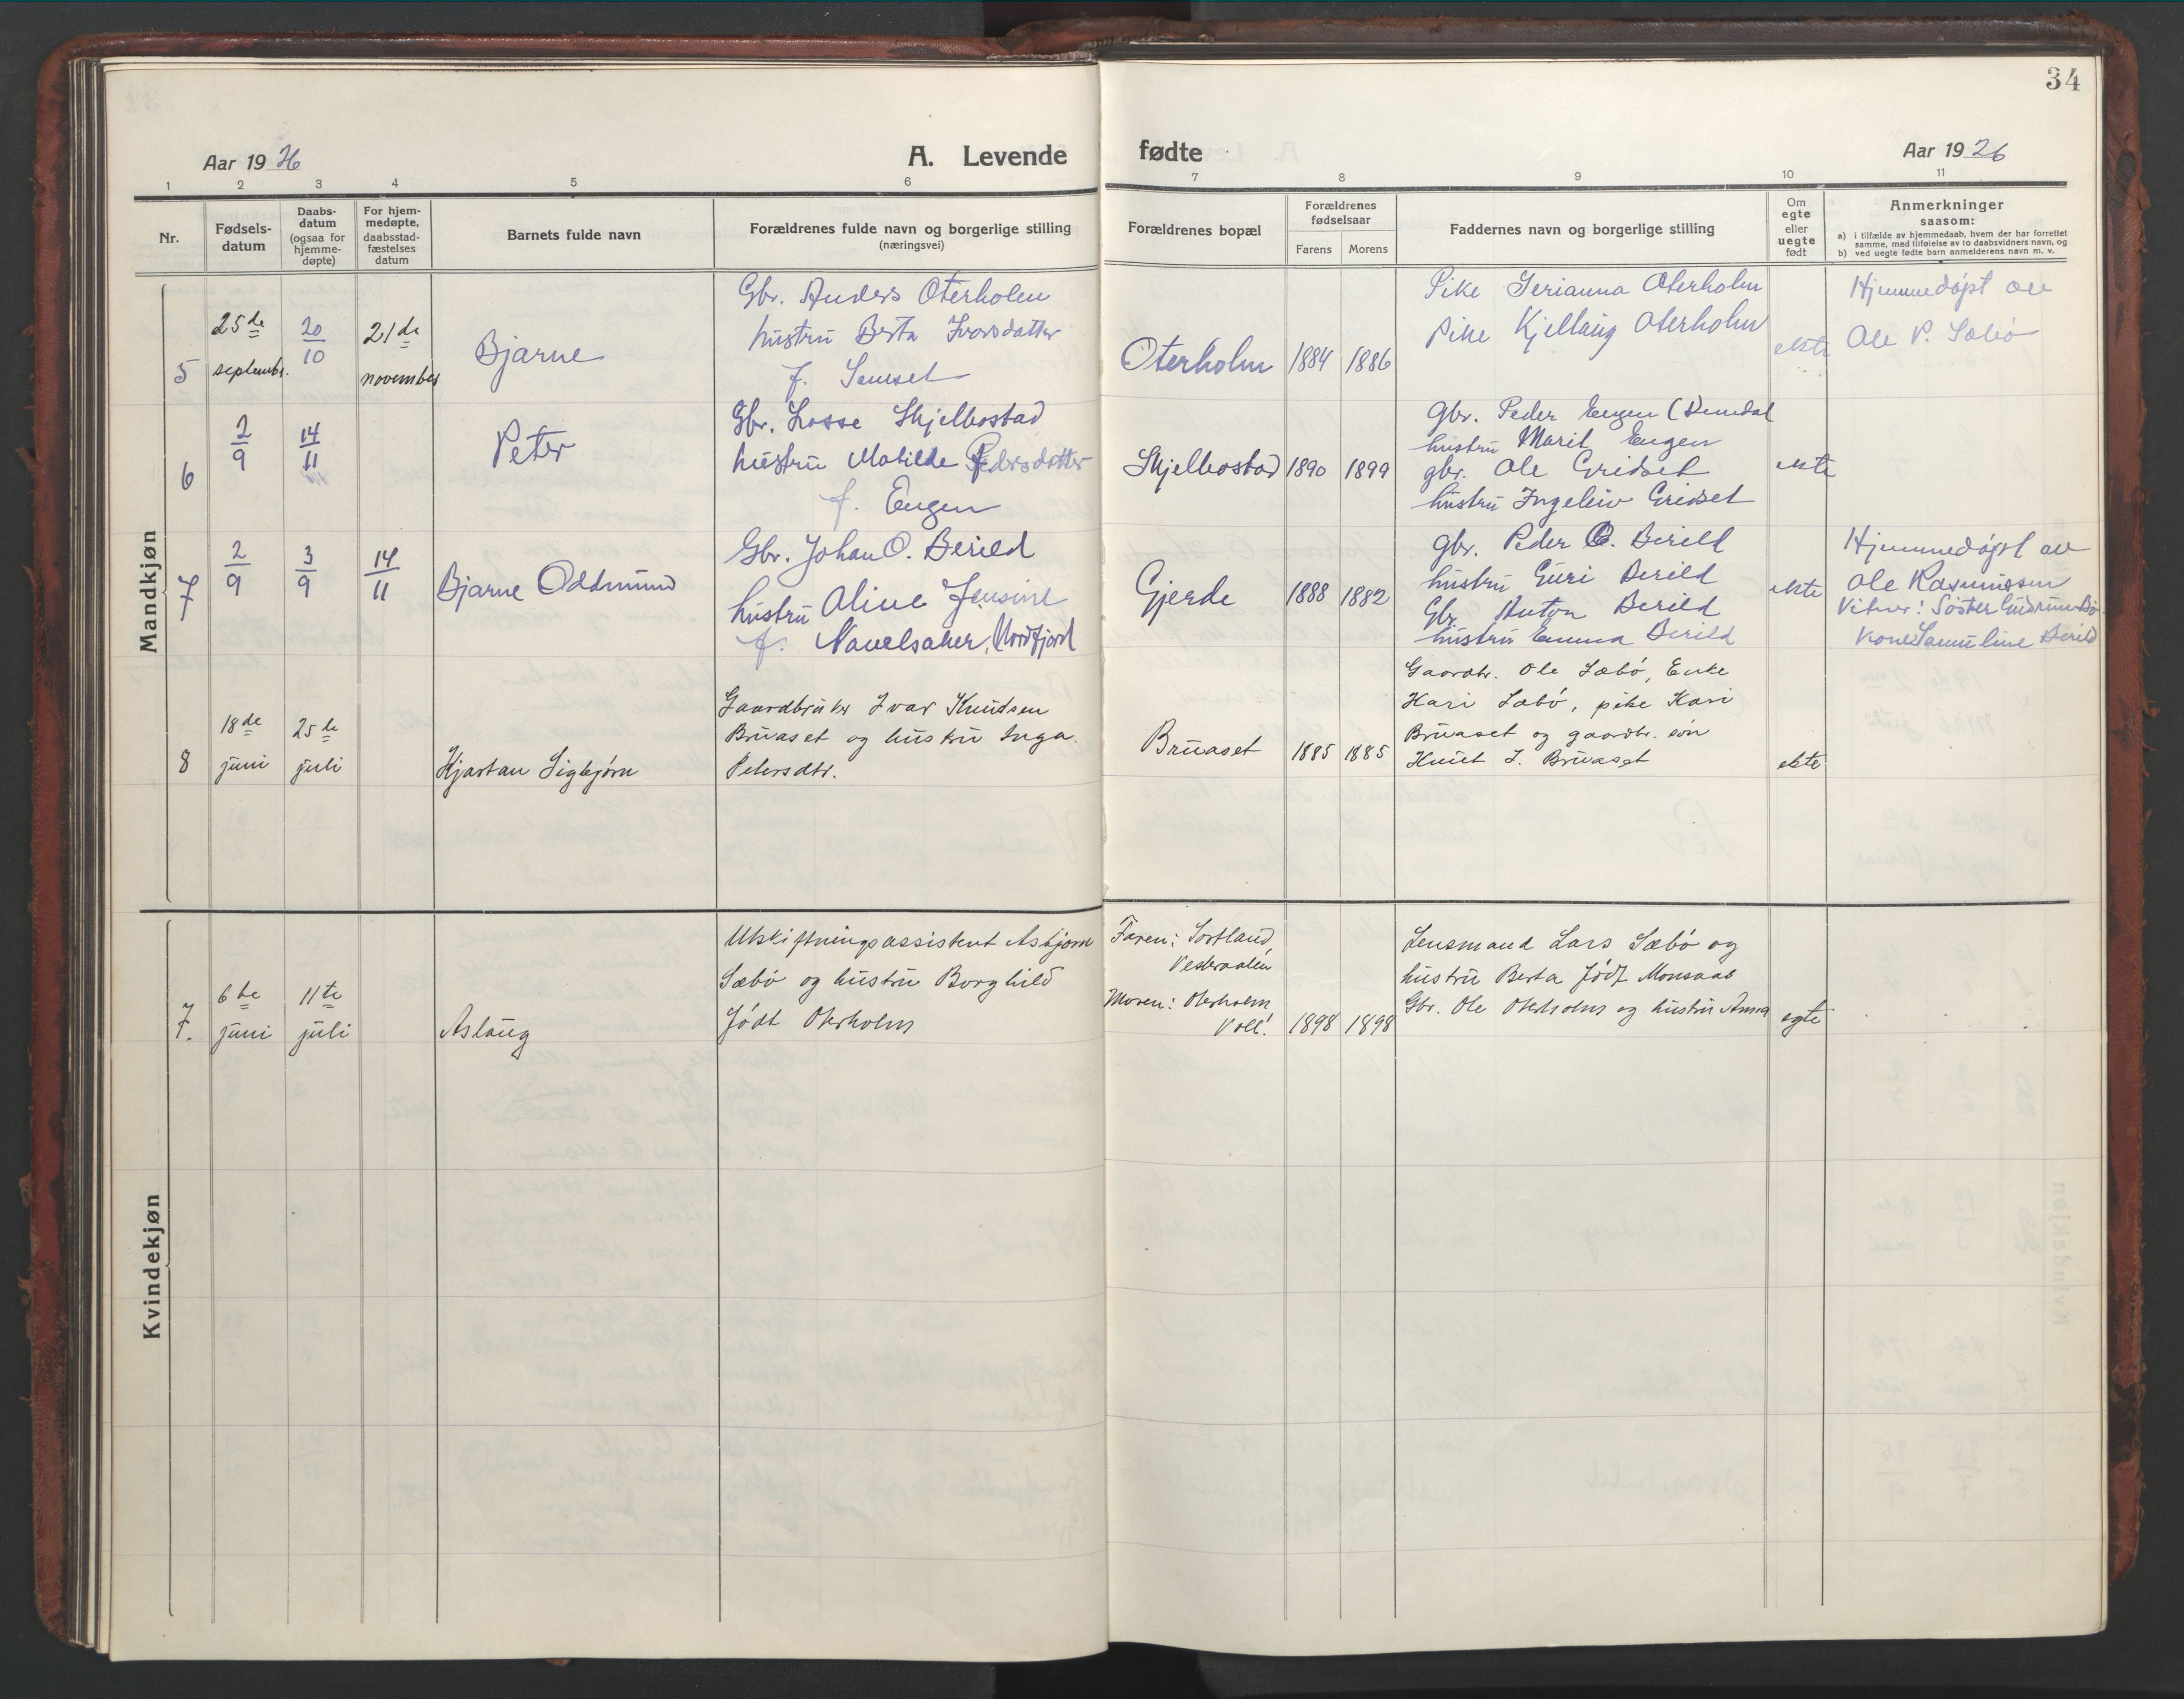 34
Aar 1926
A. Levende
fødte
Aar 1926
1 2 3 4 5 6 7 8 9 10 11
Nr.
Fødsels-
datum
Daabs-
datum
(ogsaa for
hjemme-
døpte)
For hjem-
medøpte,
daabsstad-
fæstelses
datum
Barnets fulde navn
Forældrenes fulde navn og borgerlige stilling
(næringsvei)
Forældrenes bopæl
Forældrenes
fødselsaar
Farens Morens
Faddernes navn og borgerlige stilling
Om
egte
eller
uegte
født
Anmerkninger
saasom:
a) i tilfælde av hjemmedaab, hvem der har forrettet
samme, med tilføielse av to daabsvidners navn, og
b) ved uegte fødte barn anmelderens navn m. v.
Mandkjøn
5
25de
septembr.
20/10
21de
november
Bjarne
Gbr. Anders Oterholm
hustru Berta Ivarsdatter
f.
Oterholm
1884 1886
Pike Oterholm
Pike Kjellaug Oterholm
ekte
Hjemmedøpt av
Ole P. Sæbø
6
2/9
14/11
Peter
Gbr. Lasse Skjelbostad
hustru Matilde Pedersdatter
f. Eugen
Skjelbostad
1890 1899
Gbr. Peder Eugen
hustru Marit Eugen
gbr. Ole Eridset
hustru Ingeleiv Eridset
ekte
7
2/9
3/9
14/11
Bjarne Oddmund
Gbr. Johan O. Berild
hustru Aline Jensine
f. Navelsaker, Nordfjord
Gjerde
1888 1882
gbr. Peder O. Berild
hustru Guri Berild
Gbr Anton Berild
hustru Emma Berild
ekte
Hjemmedøpt av
Ole Rasmussen
Vitner: Søster Gudrun Bø
Kone Samuline Berild
8
18de
juni
25de
juli
Kjartan Sigbjørn
Gaardbruker Ivar Knudsen
Bruaset og hustru Inga
Petersdtr.
Bruaset
1885 1885
Gaardbr. Ole Sæbø, Enke
Kari Sæbø, pike Kari
Bruaset og gaardbr. søn
Knut I. Bruaset
ekte
Kvindekjøn
7.
6te
juni
11te
juli
Aslaug
Utskiftningsassistent Asbjørn
Sæbø og hustru Borghild
født Oterholm
Faren: Sortland,
Vesteraalen
Moren: Oterholm
Voll.
1898 1898
Lensmand Lars Sæbø og
hustru Berta født Monsaas
Gbr. Ole Oterholm og hustru Anna
egte